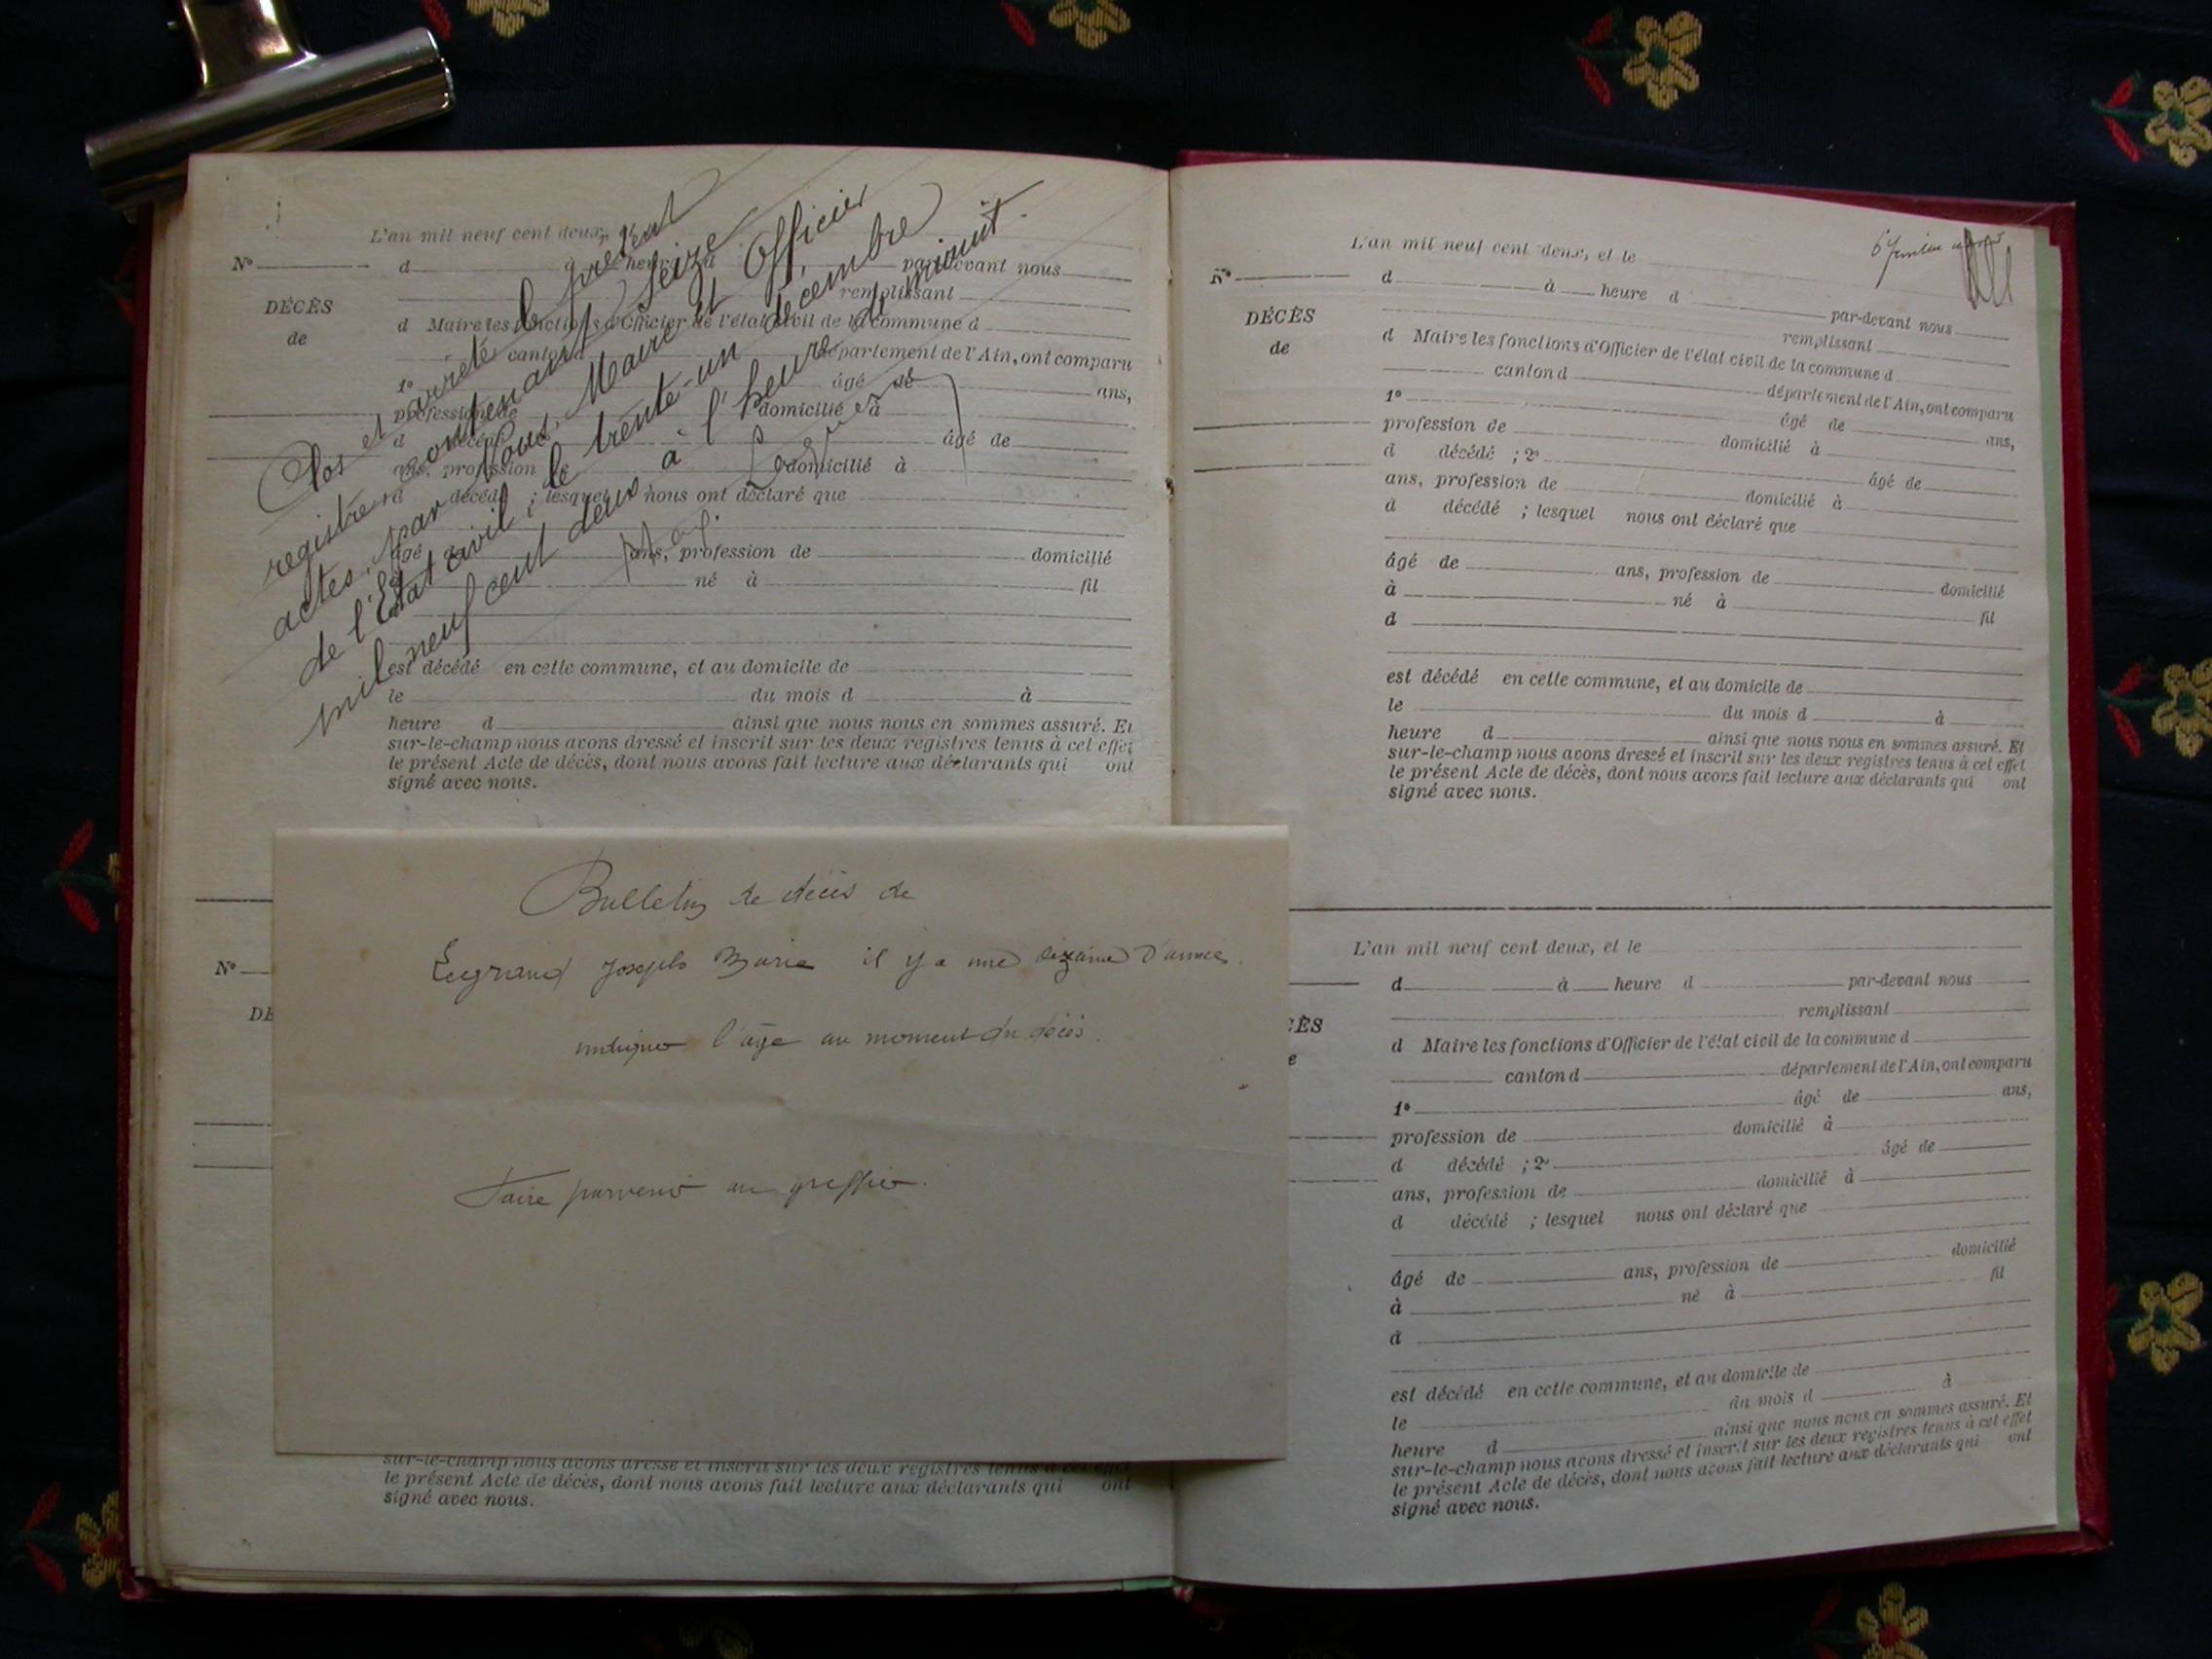 L'an mil neuf cent deux,
N°
d à heure par-devant nous
DÉCÈS
de
remplissant
d Maire les fonctions d'Officier de l'état civil de la commune d
canton d département de l'Ain, ont comparu
1° âgé de ans,
profession de domicilié à
d décédé âgé de
ans, profession de domicilié à
d décédé ; lesquel nous ont déclaré que
âgé ans, profession de domicilié
né à fil
est décédé en cette commune, et au domicile de
le du mois d à
heure d ainsi que nous nous en sommes assuré. Et
sur-le-champ nous avons dressé et inscrit sur les deux registres tenus à cet effet
le présent Acte de décès, dont nous avons fait lecture aux déclarants qui ont
signé avec nous.
Clos et arrêté le présent
registre contenant seize
actes, par Nous, Maire et Officier
de l'Etat civil, le trente-un décembre
mil neuf cent deux à l'heure de minuit.
Bulletin de décès de
Legrand Joseph Marie il y a une dizaine d'années.
indiquer l'âge au moment du décès.
Faire parvenir au greffier.
N°
DÉ
sur-le-champ nous avons dressé et inscrit sur les deux registres tenus à cet effet
le présent Acte de décès, dont nous avons fait lecture aux déclarants qui ont
signé avec nous.
L'an mil neuf cent deux, et le
N°
d à heure d par-devant nous
DÉCÈS
de
remplissant
d Maire les fonctions d'Officier de l'état civil de la commune d
canton d département de l'Ain, ont comparu
1° âgé de ans,
profession de domicilié à
d décédé ; 2° âgé de
ans, profession de domicilié à
d décédé ; lesquel nous ont déclaré que
âgé de ans, profession de domicilié
à né à fil
d
est décédé en cette commune, et au domicile de
le du mois d à
heure d ainsi que nous nous en sommes assuré. Et
sur-le-champ nous avons dressé et inscrit sur les deux registres tenus à cet effet
le présent Acte de décès, dont nous avons fait lecture aux déclarants qui ont
signé avec nous.
L'an mil neuf cent deux, et le
d à heure d par-devant nous
remplissant
CÈS
e
d Maire les fonctions d'Officier de l'état civil de la commune d
canton d département de l'Ain, ont comparu
1° âgé de ans,
profession de domicilié à
d décédé ; 2° âgé de
ans, profession de domicilié à
d décédé ; lesquel nous ont déclaré que
âgé de ans, profession de domicilié
à né à fil
d
est décédé en cette commune, et au domicile de
le du mois d à
heure d ainsi que nous nous en sommes assuré. Et
sur-le-champ nous avons dressé et inscrit sur les deux registres tenus à cet effet
le présent Acte de décès, dont nous avons fait lecture aux déclarants qui ont
signé avec nous.